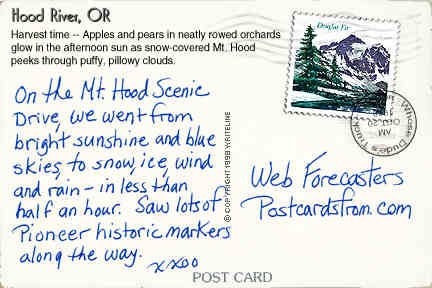 Hood River, OR
Harvest time -- Apples and pears in neatly rowed orchards
glow in the afternoon sun as snow-covered Mt. Hood
peeks through puffy, pillowy clouds.
Douglas Fir
On the Mt. Hood Scenic
Drive, we went from
bright sunshine and blue
skies, to snow, ice, wind
and rain - in less than
half an hour. Saw lots of
Pioneer historic markers
along the way.
xxoo
© COPYRIGHT 1998 WRITELINE
Whose Dude's Truck
AM
OCT 20
Web Forecasters
Postcardsfrom.com
POST CARD